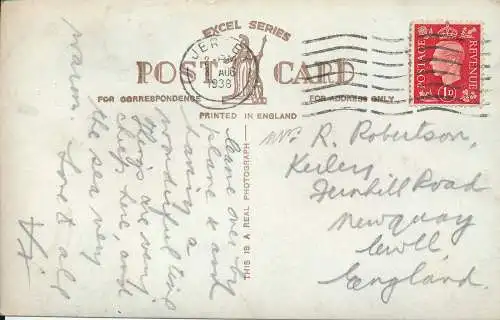 EXCEL SERIES
POST CARD
FOR CORRESPONDENCE
FOR ADDRESS ONLY
PRINTED IN ENGLAND
THIS IS A REAL PHOTOGRAPH
AUG
1938
POSTAGE
REVENUE
1D
Came over by
plane & am
having a
wonderful time
Things are very
cheap here, and
the sea very
warm. Love to all
Vi
Mrs R. Robertson,
Fernhill Road
Newquay
Cwll
England.